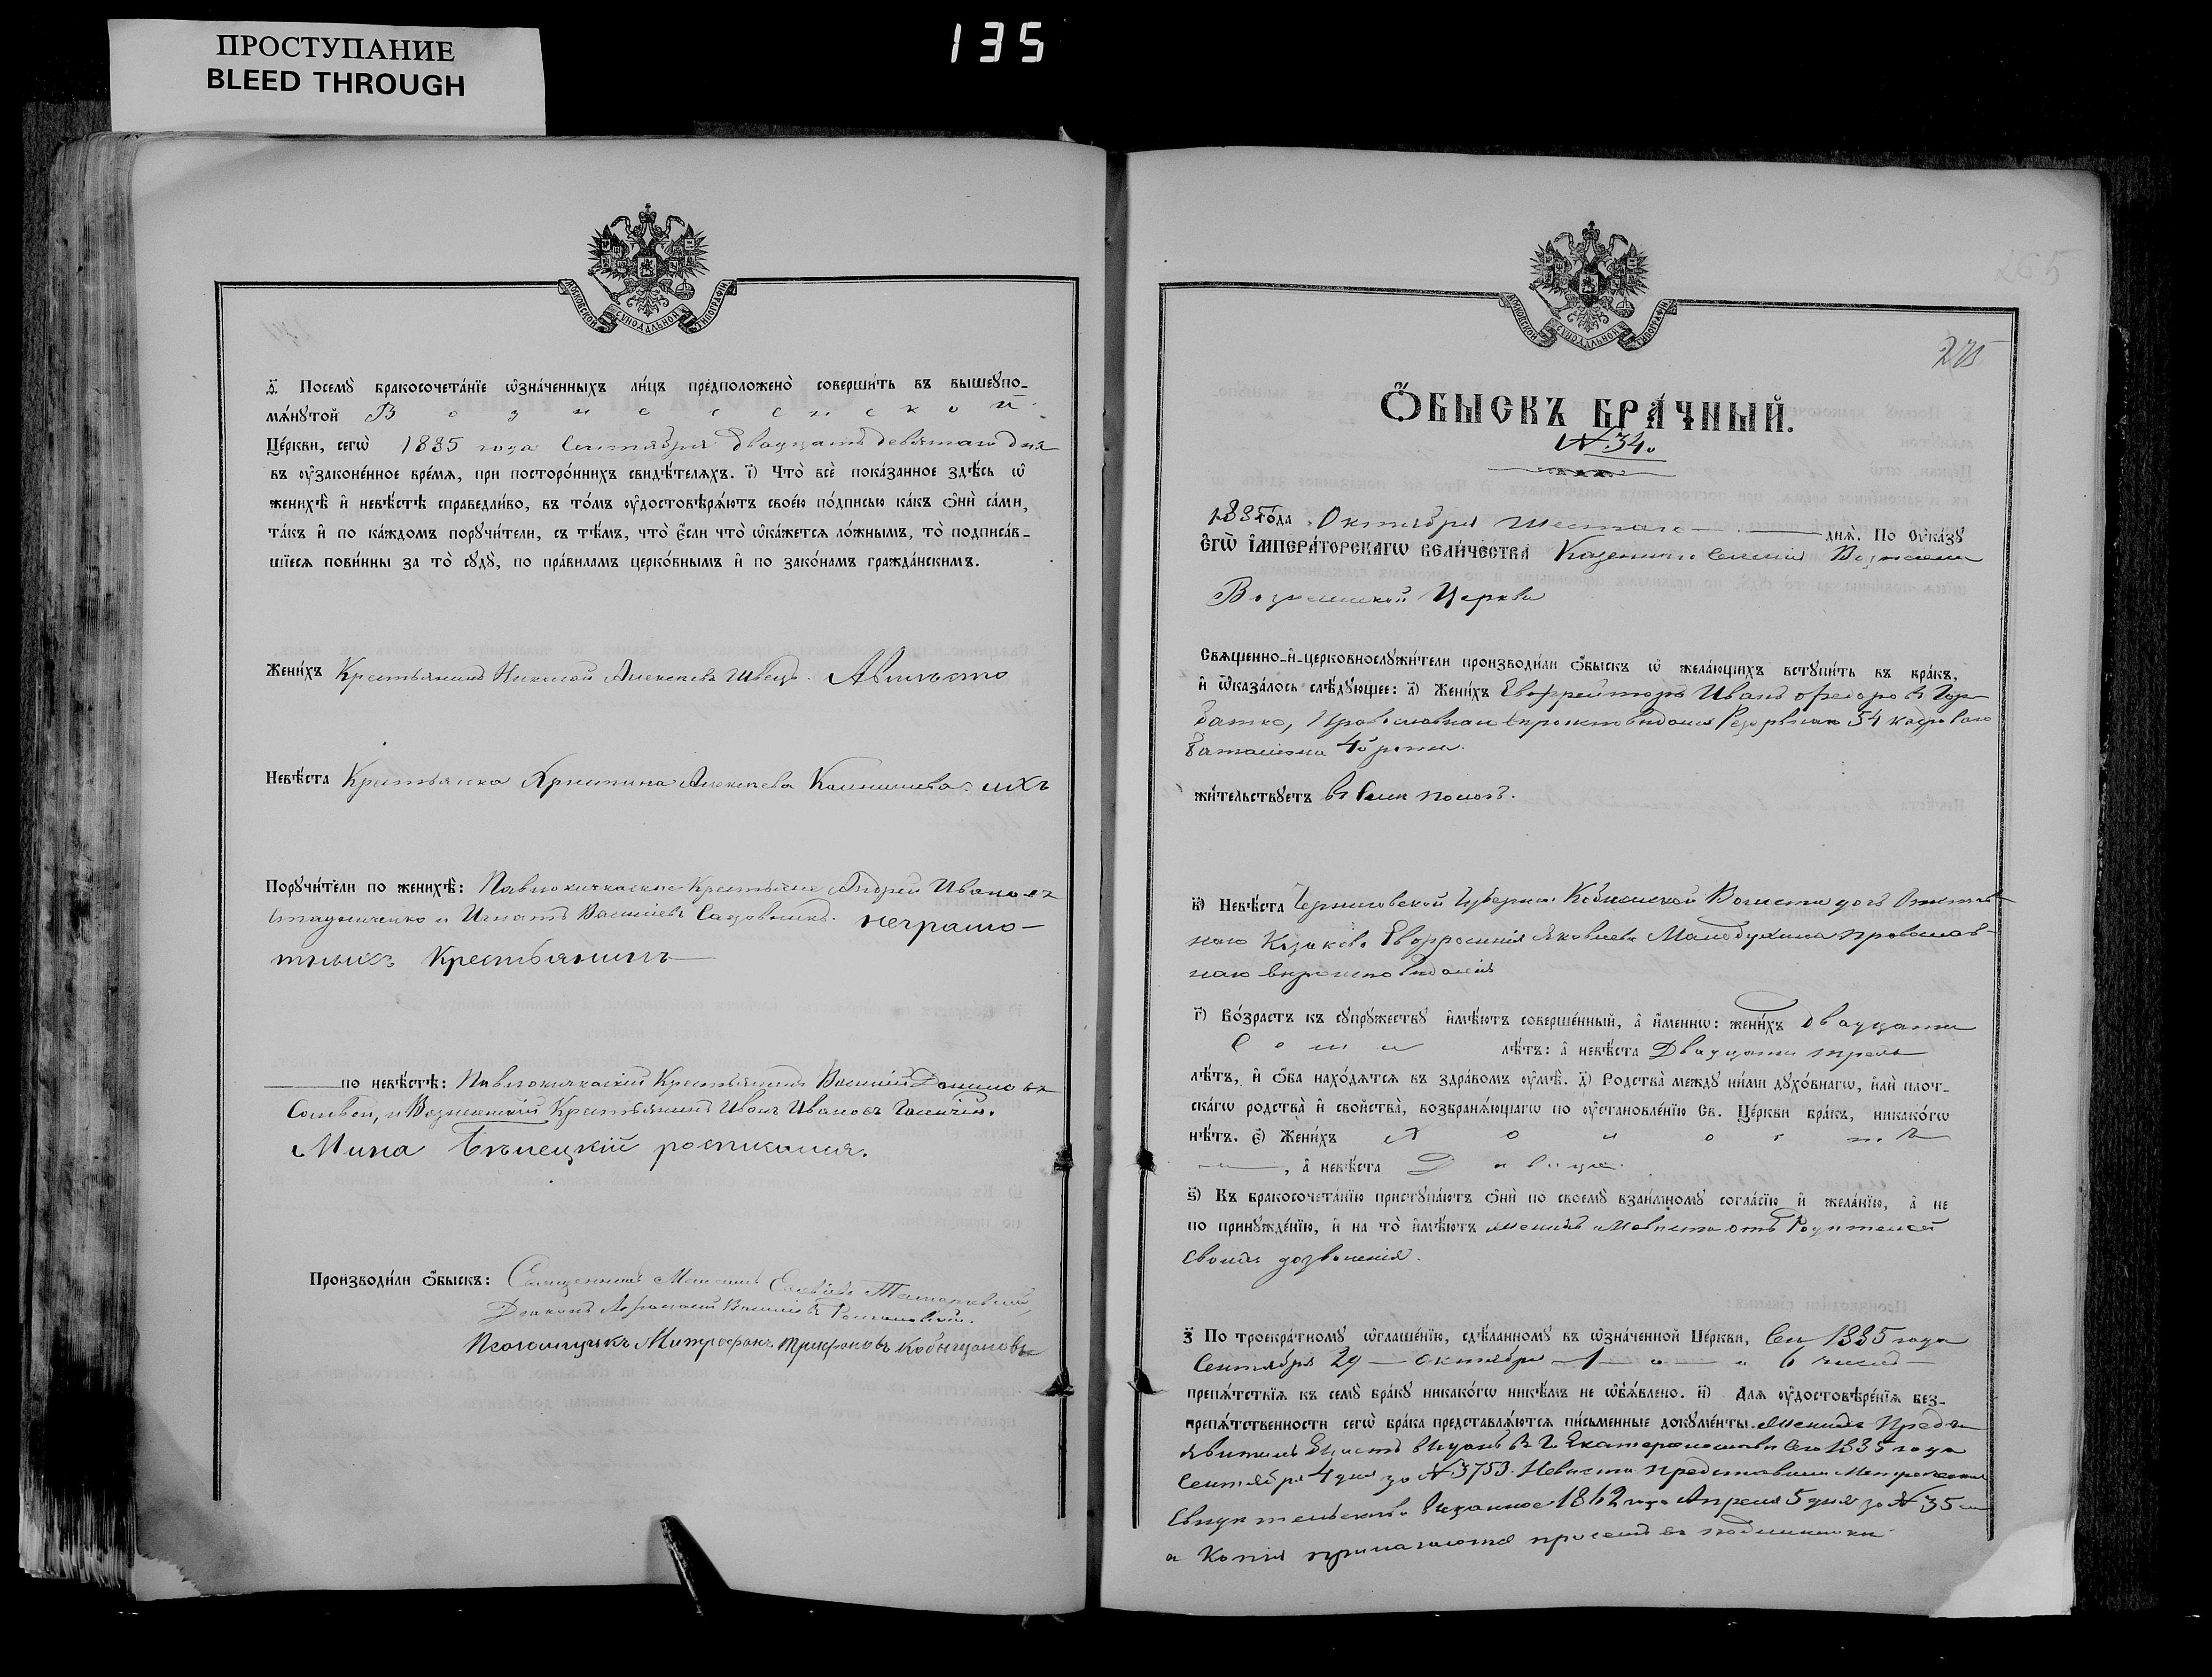 ПРОСТУПАНИЕ
BLEED THROUGH
135
МОСКОВСКОЙ СѴНОДАЛЬНОЙ ТИПОГРАФІИ
ѳ҃. Посемꙋ̀ бракосочета́нїе ѡ҆зна́ченныхъ ли́цъ предположено̀ соверши́ть въ вышеꙋпо-
мѧ́нꙋтой Вознесенской
Це́ркви, сегѡ̀ 1885 года Сентября двадцать девятаго дня
въ ᲂу҆зако́нѐнное вре́мѧ, при посторо́ннихъ свидѣ́телѧхъ. і҃) Что̀ всѐ пока́занное здѣ́сь ѡ҆
женихѣ̀ и҆ невѣ́стѣ справедли́во, въ то́мъ ᲂу҆достовѣрѧ́ютъ свое́ю по́дписью ка́къ ѻ҆нѝ са́ми,
та́къ и҆ по ка́ждомъ порꙋчи́тели, съ тѣ́мъ, что̀ є҆́сли что̀ ѡ҆ка́жетсѧ ло́жнымъ, то̀ подписа́в-
шїесѧ пови́нны за то̀ сꙋдꙋ̀, по пра́виламъ церко́внымъ и҆ по зако́намъ гражда́нскимъ.
Жени́хъ Крестьянинъ Николай Алексѣевъ Швецъ.
Невѣ́ста Крестьянка Алексѣева ихъ
Порꙋчи́тели по женихѣ̀: Павлокичкаские Крестьяне Андрей Ивановъ
и Игнатъ Васильевъ Садовникъ. неграмо-
тныхъ Крестьянинъ
по невѣ́стѣ: Павлокичкаскій Крестьянинъ Василій Даниловъ
и Вознесенскій Крестьянинъ Иванъ Ивановъ
Мина Бѣлецкій росписался.
Производи́ли ѻ҆́быскъ: Священникъ
Діаконъ Васильевъ
Псаломщикъ Митрофанъ Трифоновъ
265
275
МОСКОВСКОЙ СѴНОДАЛЬНОЙ ТИПОГРАФІИ
Ѻ҆́БЫСКЪ БРА́ЧНЫЙ.
№ 34.
1885 го́да Октября Шестаго днѧ̀. По ᲂу҆ка́зꙋ
Є҆гѡ̀ І҆мпера́торскагѡ Вели́чества Казеннаго Селенія Вознесенки
Вознесенской Церкви
Свѧще́нно-и҆-церковнослꙋжи́тели производи́ли ѻ҆́быскъ ѡ҆ жела́ющихъ встꙋпи́ть въ бра́къ,
и҆ ѡ҆каза́лось слѣ́дꙋющее: а҃) Жени́хъ Ефрейторъ Иванъ Федоровъ Гор-
батко, Православнаго вѣроисповѣданія Резервнаго 54 кадроваго
баталіона 4й роты.
жи́тельствꙋетъ въ
в҃) Невѣ́ста Черниговской Губерніи Волости дочь Отстав-
наго Козакова Евфросинія Яковлева православ-
наго вѣроисповѣданія
г҃) Во́зрастъ къ сꙋпрꙋ́жествꙋ и҆мѣ́ютъ соверше́нный, а҆ и҆́меннѡ: жени́хъ двадцати
Семи лѣ́тъ: а҆ невѣ́ста Двадцати трехъ
лѣ́тъ, и҆ ѻ҆́ба нахо́дѧтсѧ въ здра́вомъ ᲂу҆мѣ̀. д҃) Родства̀ междꙋ ни́ми дꙋхо́внагѡ, и҆лѝ плот-
ска́гѡ родства̀ и҆ свойства̀, возбранѧ́ющагѡ по ᲂу҆становле́нїю Св. Це́ркви бра́къ, никако́гѡ
нѣ́тъ. є҃) Жени́хъ Холостъ
, а҆ невѣ́ста Дѣвица.
ѕ҃) Къ бракосочета́нїю пристꙋпа́ютъ ѻ҆нѝ по своемꙋ̀ взаи́мномꙋ согла́сїю и҆ жела́нїю, а҆ не
по принꙋжде́нїю, и҆ на то̀ и҆мѣ́ютъ женихъ и невѣста отъ Родителей
своихъ дозволенія.
з҃) По троекра́тномꙋ ѡ҆глаше́нїю, сдѣ́ланномꙋ въ ѡ҆зна́ченной Це́ркви, Сего 1885 года
Сентября 29 Октября 1 и 6 чиселъ
препѧ́тствїѧ къ семꙋ̀ бра́кꙋ никако́гѡ никѣ́мъ не ѡ҆б̾ѧ́влено. и҃) Длѧ ᲂу҆достовѣре́нїѧ без-
препѧ́тственности сегѡ̀ бра́ка представлѧ́ютсѧ пи́сьменные докꙋме́нты. Женихъ Предъ-
явилъ билетъ выданъ въ Г. Екатеринославѣ Сего 1885 года
Сентября 4 дня за № 3753. Невѣста представила Метрическое
Свидѣтельство выданное 1862 года Апреля 5 дня за № 35
а Копія прилагаются при семъ въ